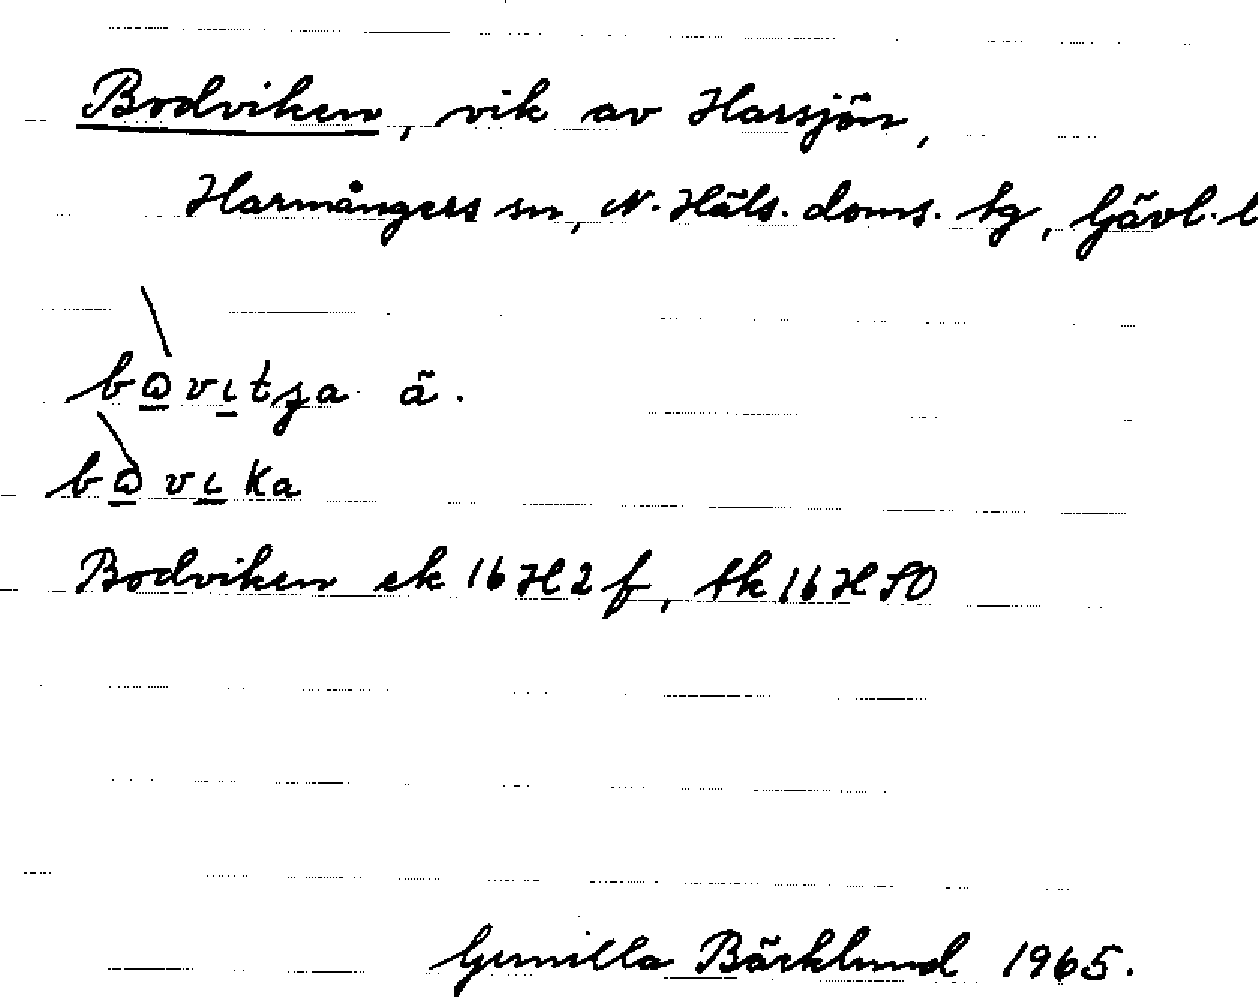 Bodviken, vik av Harsjön,
Harmångers sn, N. Häls. doms. tg, Gävl. l
bωvιtʒa ä.
bωvιka
Bodviken ek 16 H 2 f, tk 16 H SO
Gunilla Bäcklund 1965.